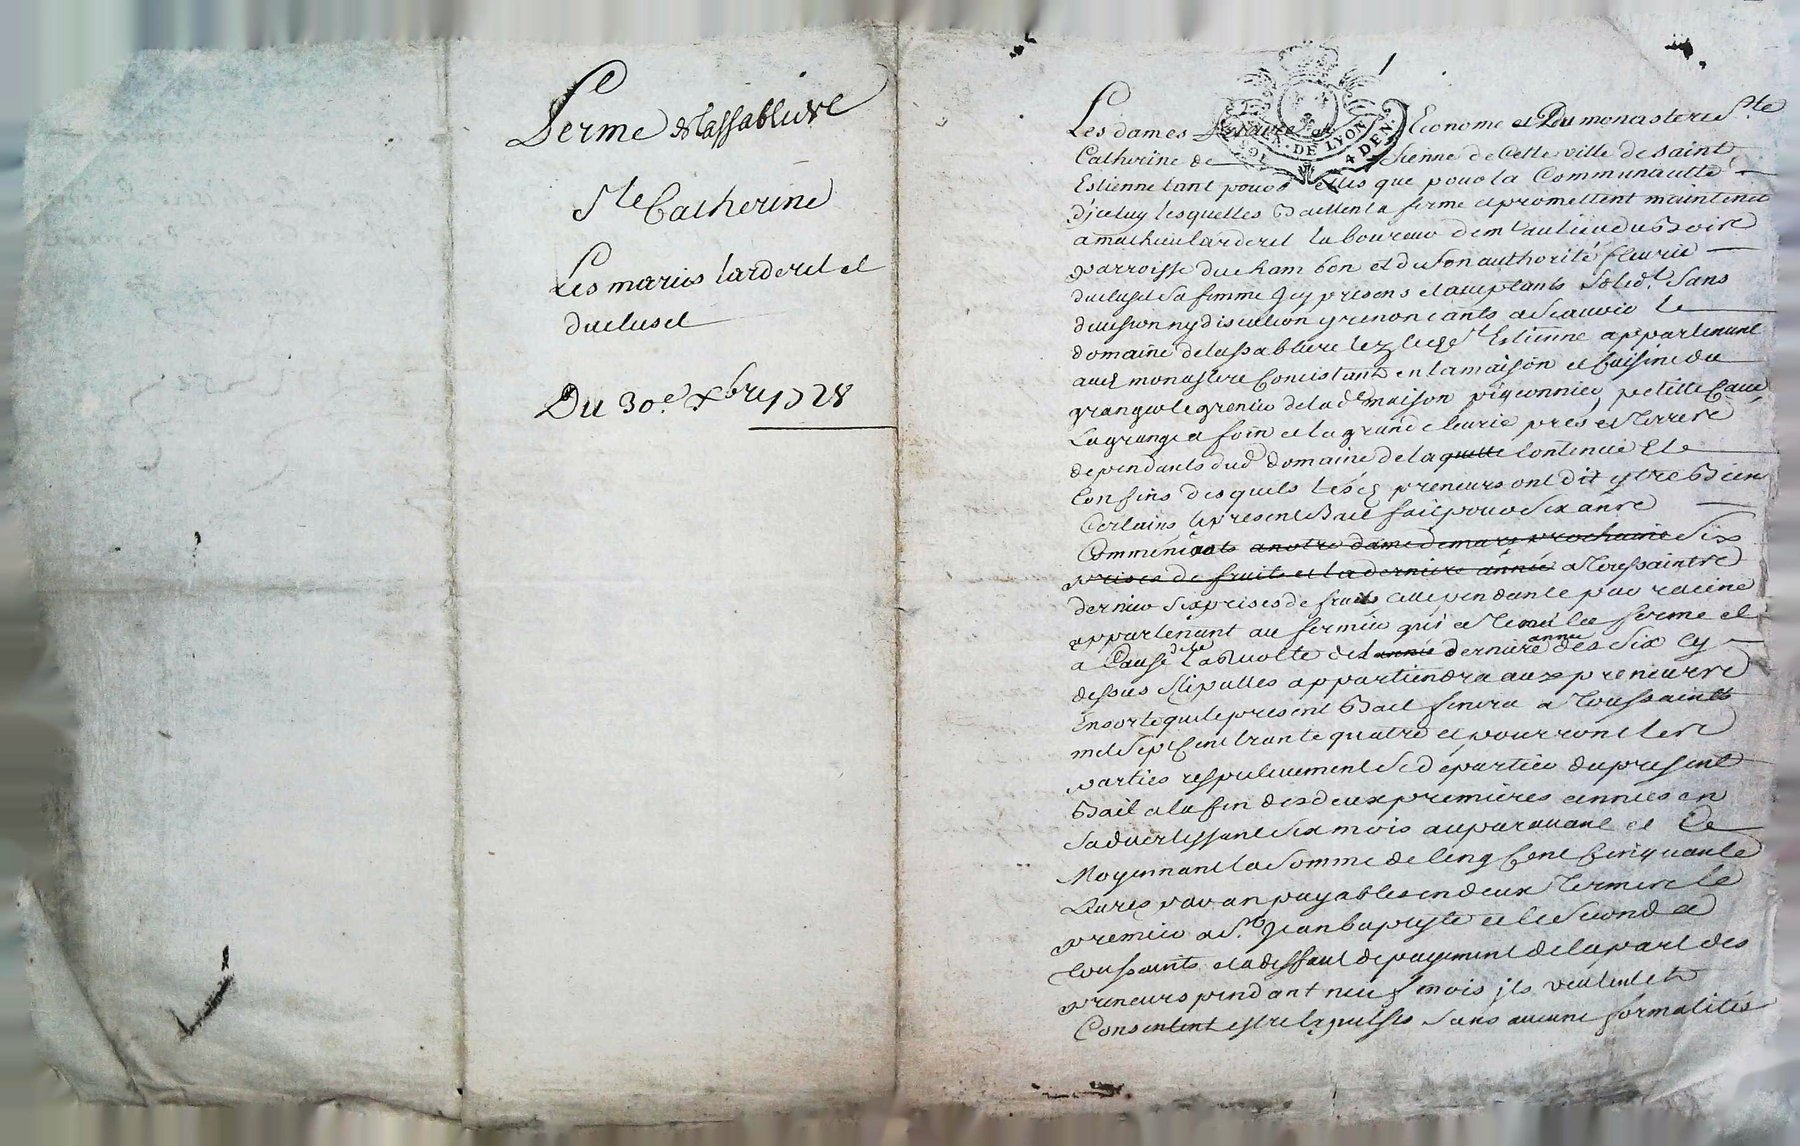 ferme de lassabliere
Ste Catherine
Les maries larderet et
duclusel
Du 30.e Xbre 1728
GEN. DE LYON
4 DEN.
Les dames prieure Econome et Du monastere Ste
Catherine de Sienne de Cette ville de saint
Estienne tant pour elles que pour la Communautté
D'jceluy lesquelles Baillent a ferme et promettent maintenir
a mathieu larderet laboureur demt au lieu du Boire
parroisse du chambon et du son authorité fleurie
duclusel sa femme jcy presens et acceptants Solidt Sans
division ny discution y renoncants a Scavoir le
domaine de lassabliere lez le St Estienne appartenant
aud monastere Concistant en la maison et Cuisine du
granger le grenier de la de maison pigeonnier, petitte Cave,
La grange a foin et la grand ecurie pres et Terres
dependants dud domaine de laquelle Contenue Et
Confins desquels lesd preneurs ont dit estre Bien
Certains le present Bail fait pour Six ans
Commencants a notre dame de mars prochaine Six
prises de fruits et la derniere année a Toussaints
dernier Six prises de fruits pendante par racine
appartenant au fermier qui a la ferme et
a Cause de ce la Recolte de l année derniere année des Six Cy
dessus Stipulles appartiendra aux preneurs
Ensorte que le present Bail finira a Toussaints
mil Sept Cent trante quatre et pourront les
parties respectivement Se départir du present
Bail a la fin des deux premieres années en
Sadvertissant Six mois auparavant et Ce
Moyennant la Somme de Cinq Cent Cinquante
Livres par an payables en deux Termes le
premier a St Jean baptiste et le Second a
Toussaints et a deffaut de payement de la part des
preneurs pendant neuf mois jls veulent et
Consentent estre Expulsés Sans aucune formalités